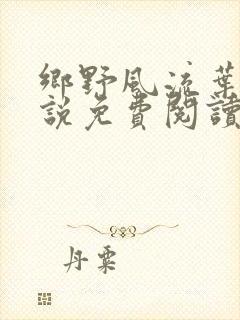 鄉野風流葉
說免費閱讀
丹粟